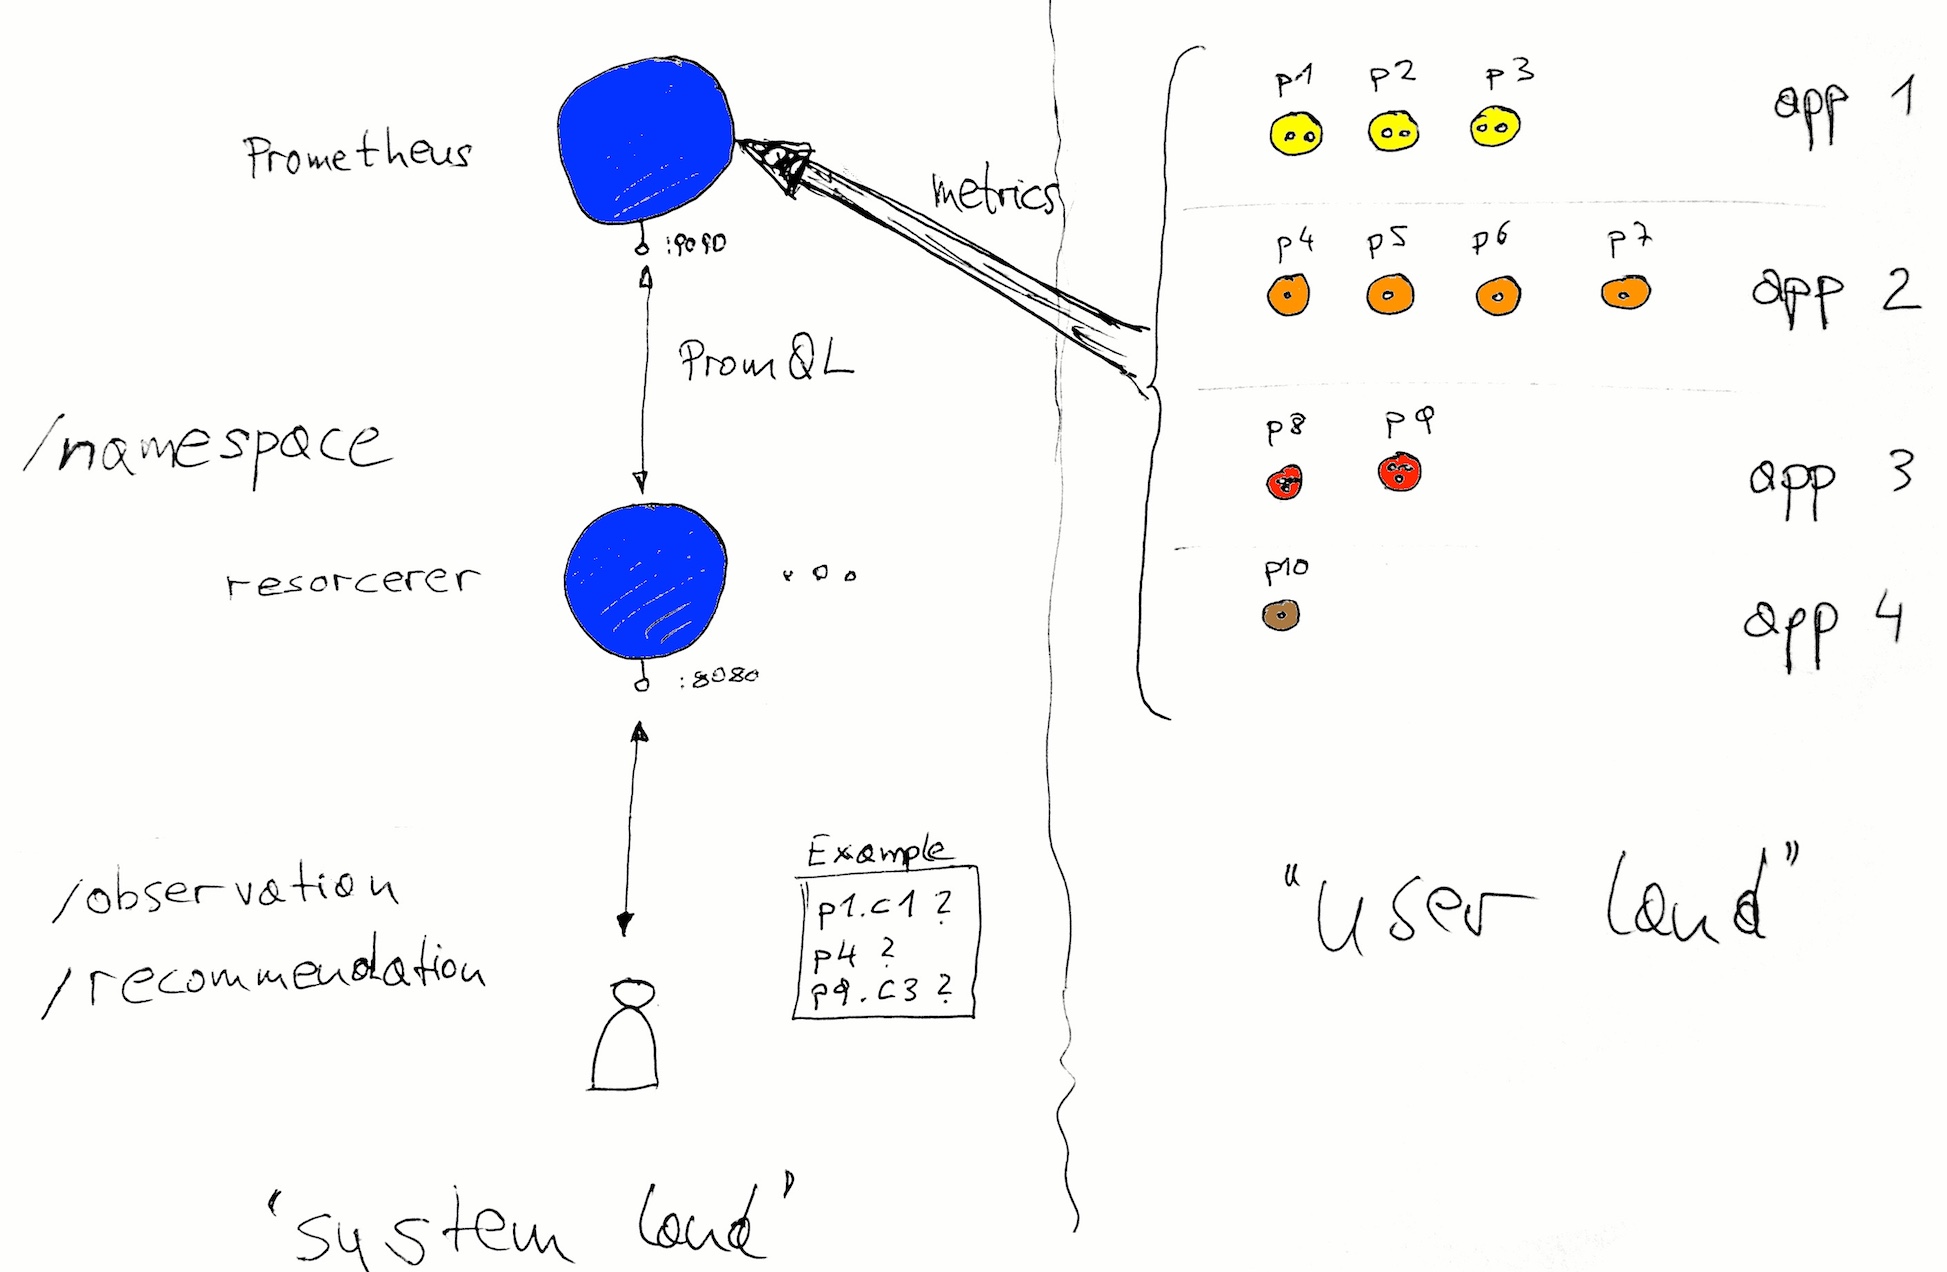 Prometheus
:9090
metrics
PromQL
/namespace
resorcerer
:8080
/observation
/recommendation
Example
p1.c1 ?
p4 ?
p9.c3 ?
"system land"
p1 p2 p3 app 1
p4 p5 p6 p7 app 2
p8 p9 app 3
p10 app 4
"user land"